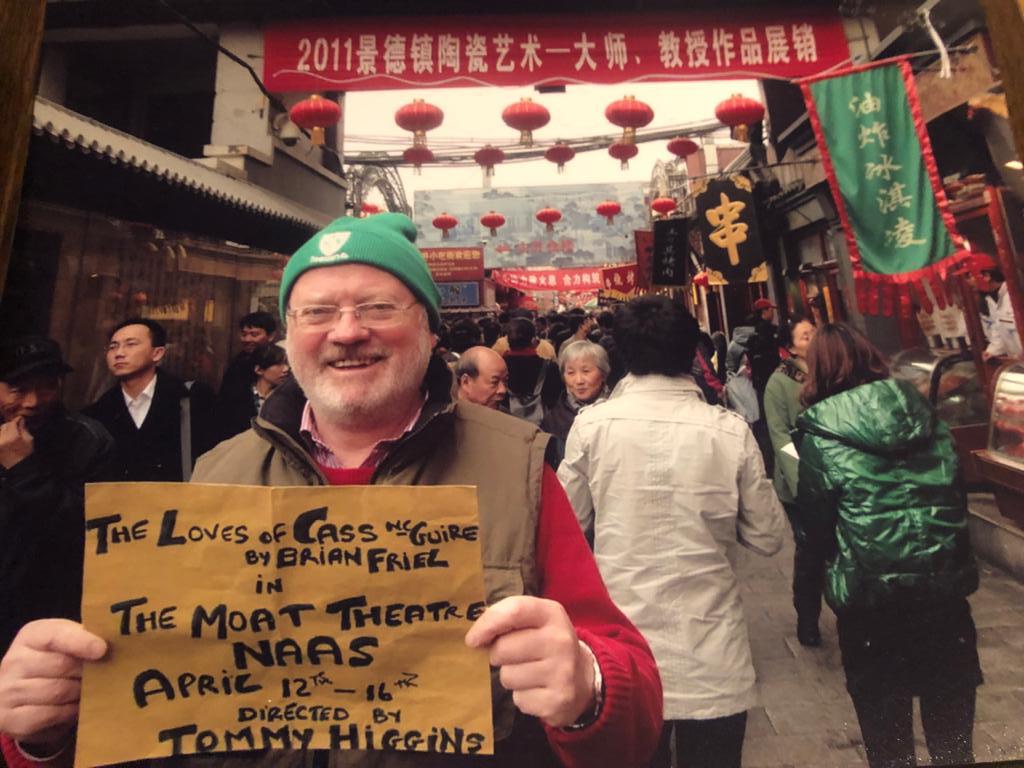 2011景德镇陶瓷艺术一大师、教授作品展销
油炸冰淇凌
串
合力构筑
THE LOVES OF CASS McGUIRE
BY BRIAN FRIEL
IN
THE MOAT THEATRE
NAAS
APRIL 12TH – 16TH
DIRECTED BY
TOMMY HIGGINS